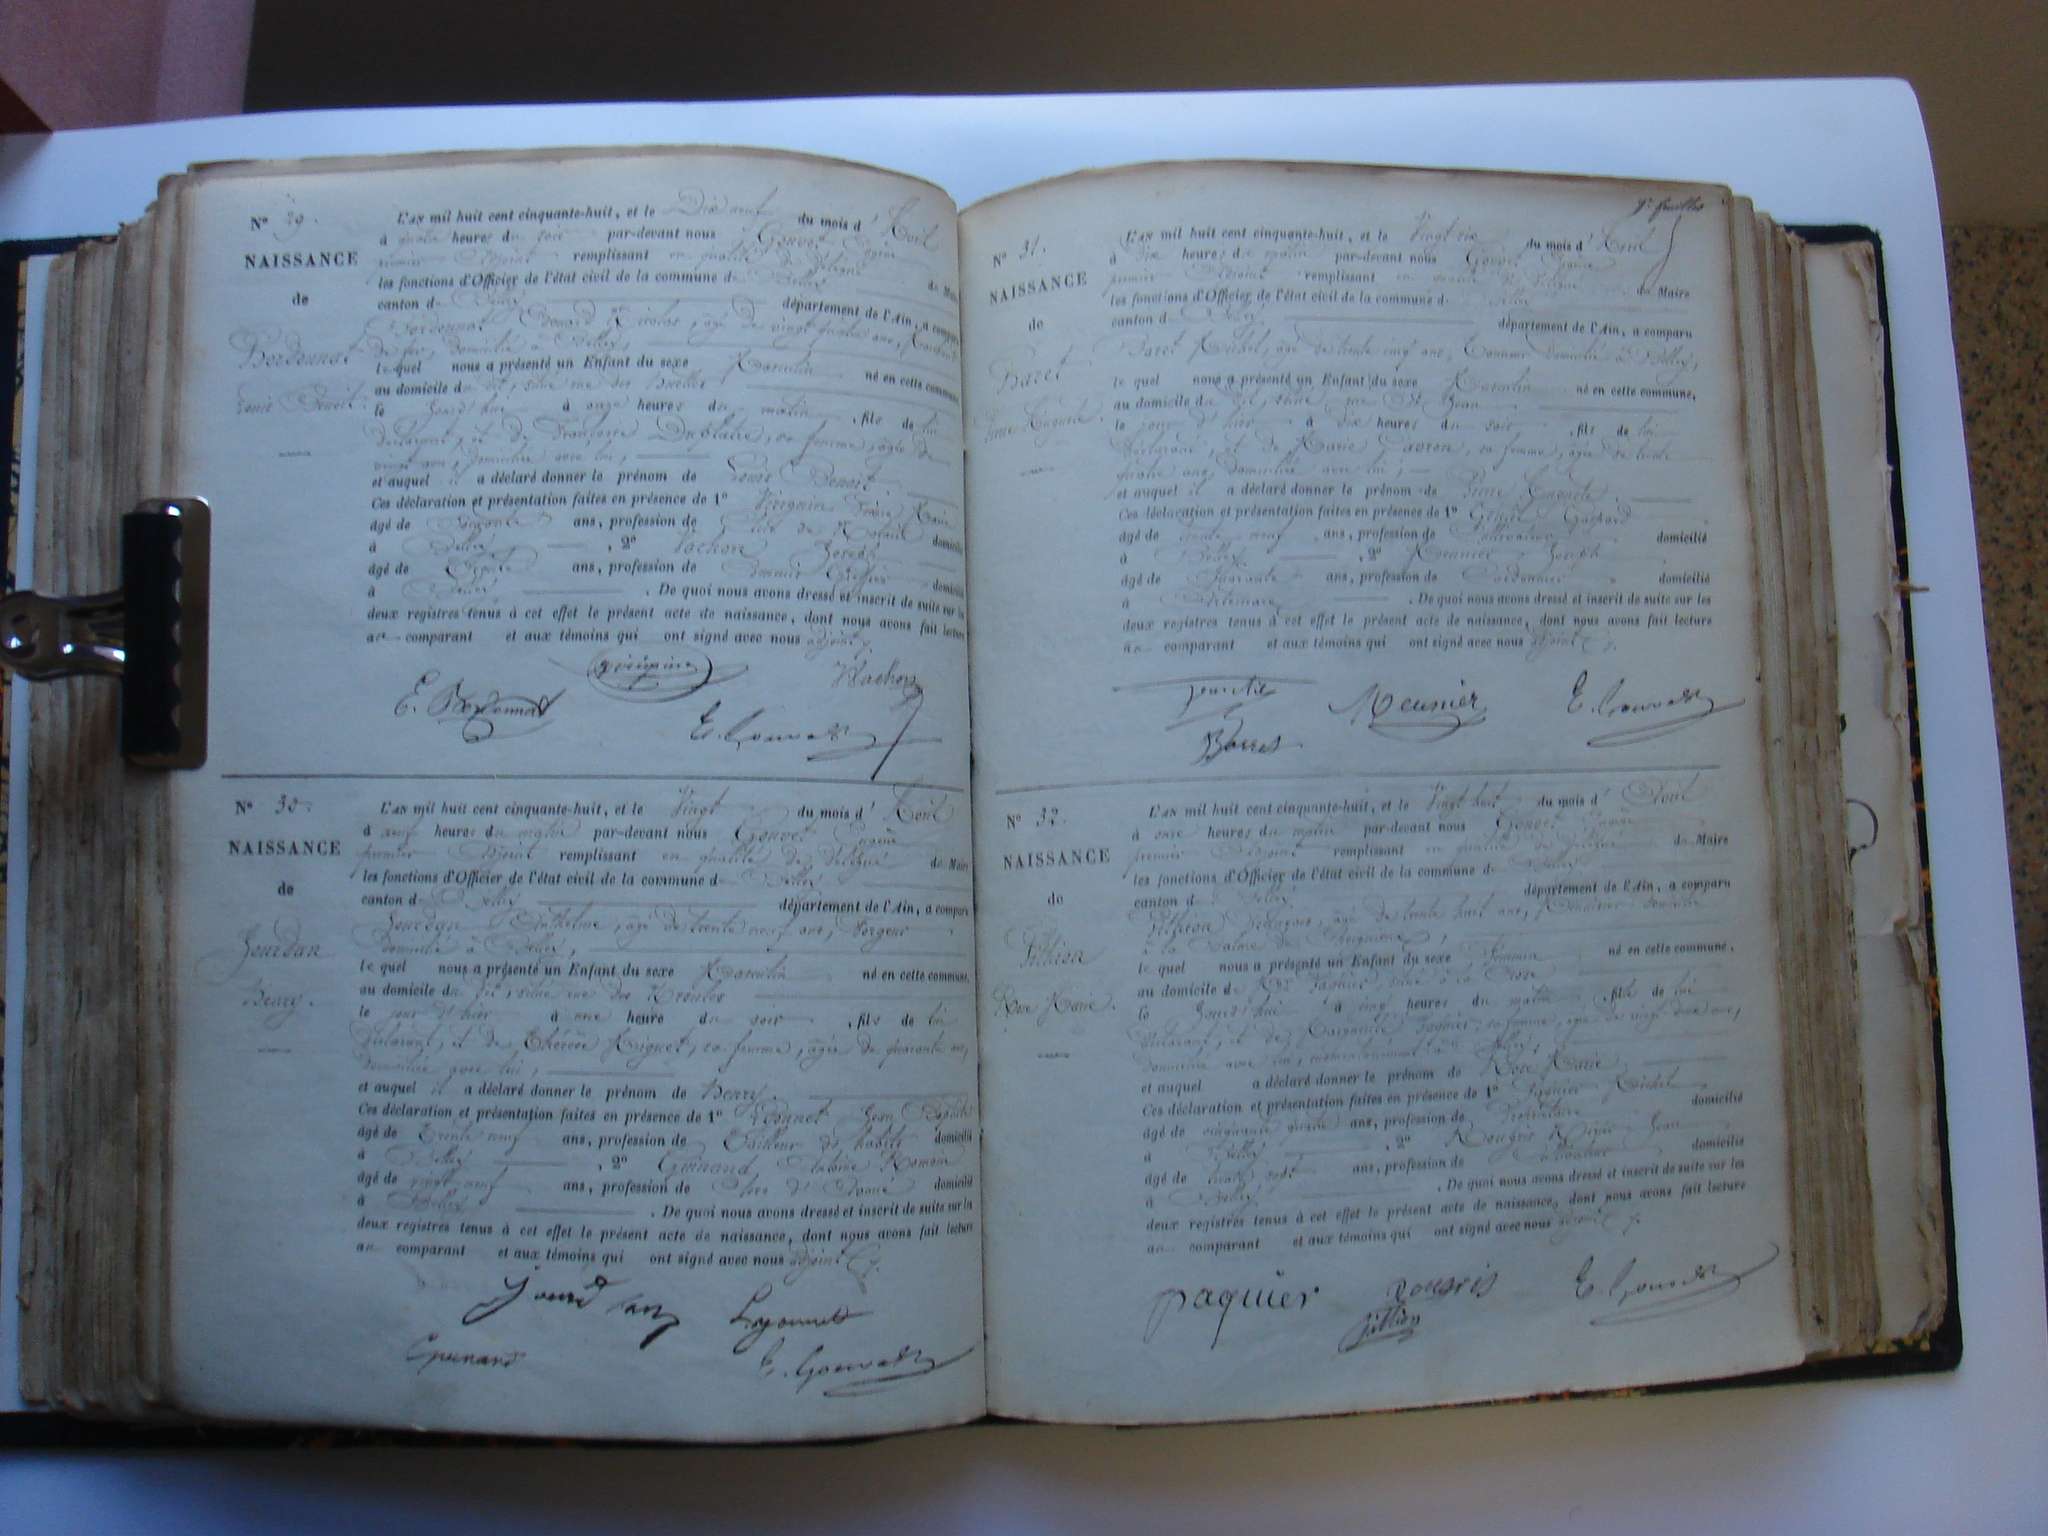 N° 29.
NAISSANCE
de
Bordonnat
Louis Benoit.
L'AN mil huit cent cinquante-huit, et le Dix neuf du mois d' Avril
à quatre heures du soir par-devant nous Gouvet
premier Adjoint remplissant en qualité de délégué du Maire
les fonctions d'Officier de l'état civil de la commune de Belley
canton de Belley département de l'Ain, a comparu
Bordonnat Edouard Nicolas, âgé de vingt quatre ans,
domicilié à Belley,
le quel nous a présenté un Enfant du sexe Masculin né en cette commune,
au domicile du dit, situé rue des
le jour d'hui à onze heures du matin, fils de lui
déclarant, et de Françoise sa femme, âgée de
vingt ans, domiciliée avec lui,
et auquel il a déclaré donner le prénom de Louis Benoit
Ces déclaration et présentation faites en présence de 1°
âgé de ans, profession de Clerc de Notaire domicilié
à Belley, 2° Vachon Joseph
âgé de Trente ans, profession de Commis Greffier domicilié
à Belley. De quoi nous avons dressé et inscrit de suite sur les
deux registres tenus à cet effet le présent acte de naissance, dont nous avons fait lecture
au comparant et aux témoins qui ont signé avec nous adjoint
Vachon
E. Bordonnat
E. Gouvet
N° 30.
NAISSANCE
de
Jourdan
Henry.
L'AN mil huit cent cinquante-huit, et le Vingt du mois d' Avril
à neuf heures du matin par-devant nous Gouvet
premier Adjoint remplissant en qualité de délégué du Maire
les fonctions d'Officier de l'état civil de la commune de Belley
canton de Belley département de l'Ain, a comparu
Jourdan Anthelme, âgé de trente neuf ans,
domicilié à Belley,
le quel nous a présenté un Enfant du sexe Masculin né en cette commune,
au domicile du dit, situé rue des
le jour d'hier à une heure du soir, fils de lui
déclarant, et de Thérèse Riguet, sa femme, âgée de quarante ans,
domiciliée avec lui,
et auquel il a déclaré donner le prénom de Henry.
Ces déclaration et présentation faites en présence de 1° Lyonnet Jean Baptiste
âgé de Trente neuf ans, profession de Tailleur d'habits domicilié
à Belley, 2° Guinand, Antoine Romain
âgé de vingt neuf ans, profession de Clerc d'Avoué domicilié
à Belley. De quoi nous avons dressé et inscrit de suite sur les
deux registres tenus à cet effet le présent acte de naissance, dont nous avons fait lecture
au comparant et aux témoins qui ont signé avec nous adjoint
Jourdan Lyonnet
Guinand E. Gouvet
N° 31.
NAISSANCE
de
Pierre
L'AN mil huit cent cinquante-huit, et le Vingt six du mois d' Avril
à Dix heures du matin par-devant nous Gouvet
premier Adjoint remplissant en qualité de délégué du Maire
les fonctions d'Officier de l'état civil de la commune de Belley
canton de Belley département de l'Ain, a comparu
Michel, âgé de trente cinq ans, domicilié à Belley,
le quel nous a présenté un Enfant du sexe Masculin né en cette commune,
au domicile du dit, situé rue St Jean
le jour d'hier à dix heures du soir, fils de lui
déclarant, et de Marie sa femme, âgée de trente
quatre ans, domiciliée avec lui,
et auquel il a déclaré donner le prénom de Pierre
Ces déclaration et présentation faites en présence de 1° Gaspard
âgé de trente neuf ans, profession de Cultivateur domicilié
à Belley, 2° Meunier Joseph
âgé de Quarante ans, profession de Cordonnier domicilié
à . De quoi nous avons dressé et inscrit de suite sur les
deux registres tenus à cet effet le présent acte de naissance, dont nous avons fait lecture
au comparant et aux témoins qui ont signé avec nous adjoint
Meunier E. Gouvet
N° 32.
NAISSANCE
de
Pithion
Rose Marie.
L'AN mil huit cent cinquante-huit, et le Vingt huit du mois d' Avril
à onze heures du matin par-devant nous Gouvet
premier Adjoint remplissant en qualité de délégué du Maire
les fonctions d'Officier de l'état civil de la commune de Belley
canton de Belley département de l'Ain, a comparu
Pithion François, âgé de trente huit ans, domicilié
à la Balme
le quel nous a présenté un Enfant du sexe Féminin né en cette commune,
au domicile de
le jour d'hui à cinq heures du matin, fille de lui
déclarant, et de Paquier, sa femme, âgée de vingt deux ans,
domiciliée avec lui,
et auquel a déclaré donner le prénom de Rose Marie
Ces déclaration et présentation faites en présence de 1° Paquier Michel
âgé de cinquante quatre ans, profession de Propriétaire domicilié
à Belley, 2° Jean
âgé de trente sept ans, profession de Cultivateur domicilié
à Belley. De quoi nous avons dressé et inscrit de suite sur les
deux registres tenus à cet effet le présent acte de naissance, dont nous avons fait lecture
au comparant et aux témoins qui ont signé avec nous adjoint
paquier E. Gouvet
pithion